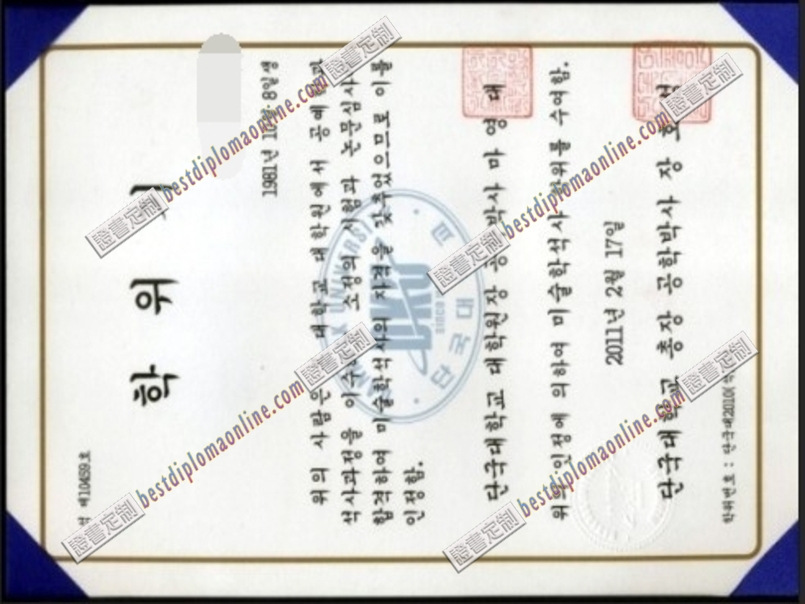 석 제10459호
학 위 기
1981년 10월 8일생
위의 사람은 대학교 대학원에서 공예
석사과정을 이수 소정의 시험과 논문심사
합격하여 미술학석사의 자격을 갖추었으므로 이를
인정함.
단국대학교 대학원장 공 박사 마 영 대
위의 인정에 의하여 미술학석사 학위를 수여함.
2011년 2월 17일
단국대학교 총장 공학박사 장 호
학위번호 : 단국대2010(석
단국대
DKU
UNIVERSITY
since
證書定制 bestdiplomaonline.com 證書定制
證書定制 bestdiplomaonline.com 證書定制
證書定制 bestdiplomaonline.com 證書定制
證書定制 bestdiplomaonline.com 證書定制